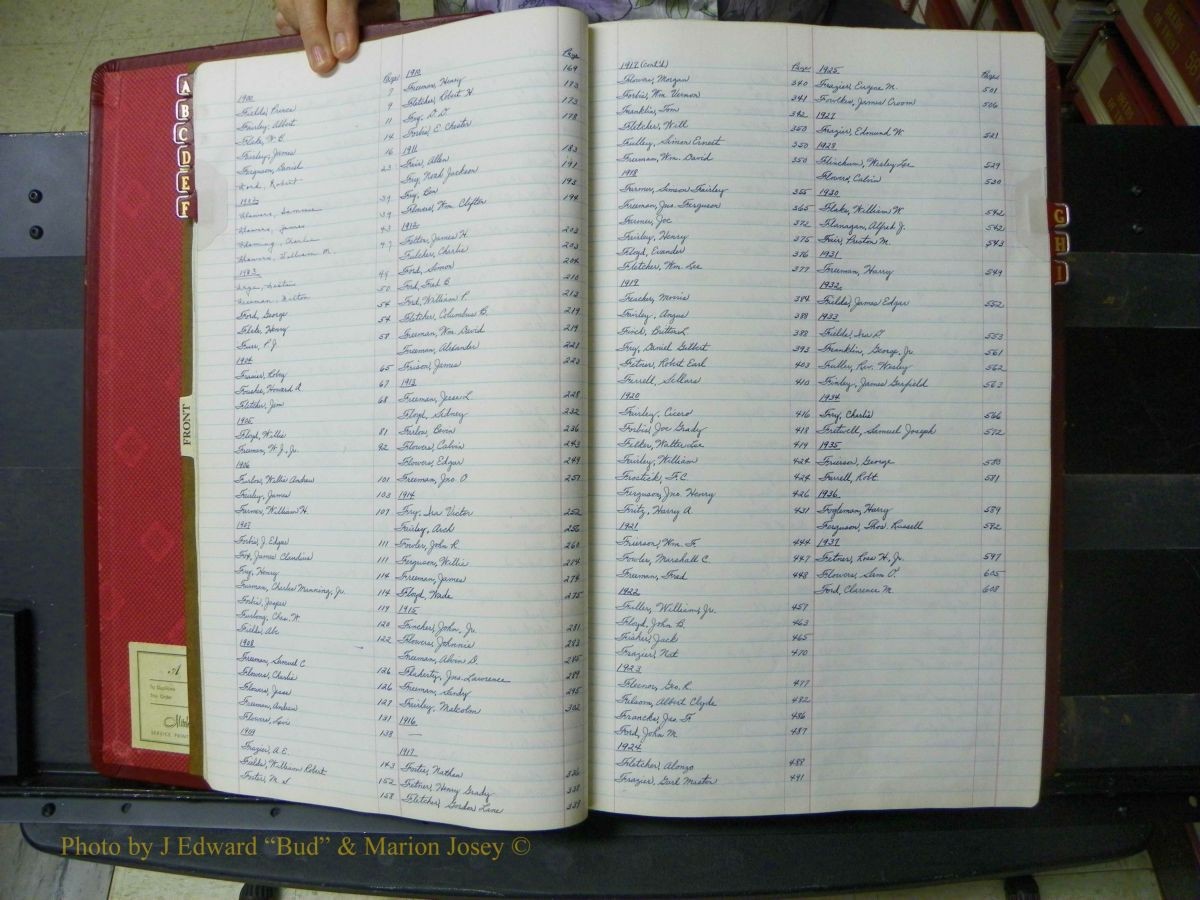 A
B
C
D
E
F
FRONT
Page
1900
Fields, Prince 7
Fairley, Albert 9
Flake, W.E. 11
Fairley, James 14
Ferguson, Daniel 16
Ford, Robert 23
1902
Flowers, James 39
Fleming, Charlie 43
Flowers, William M. 47
1903
Freeman, Milton 50
Ford, George 54
Flake, Henry 54
Furr, P.J. 57
1904
Frasier, Roby 65
Foushee, Howard A. 67
Fletcher, Jim 68
1905
Floyd, Willis 81
Freeman, W.J., Jr. 92
1906
Furlow, Willis Andrew 101
Fairley, James 103
Farmer, William H. 107
1907
Forbis, J. Edgar 111
Fox, James Claudius 111
Frye, Henry 114
Furman, Charles Manning, Jr. 114
Forbis, Jasper 119
Furlong, Chas. W. 120
Fields, Abe 122
1908
Freeman, Samuel C. 126
Flowers, Charlie 126
Flowers, Jesse 127
Freeman, Andrew 131
Flowers, Levis 138
1909
Frazier, A.E. 143
Fields, William Robert 152
Foster, M.S. 158
Page
1910
Freeman, Henry 169
Fletcher, Robert H. 173
Fry, D.D. 173
Forbis, E. Chester 178
1911
Fair, Allen 183
Fry, Noah Jackson 191
Fry, Ben 193
Flowers, Wm. Clifton 194
1912
Felton, James H. 203
Fulcher, Charlie 203
Ford, Simon 204
Ford, Fred B. 210
Ford, William P. 213
Fletcher, Columbus B. 219
Freeman, Wm. David 219
Freeman, Alexander 221
Frison, James 223
1913
Freeman, Jesse L. 228
Floyd, Sidney 232
Furlow, Boven 236
Flowers, Calvin 243
Flowers, Edgar 249
Freeman, Jno. O. 251
1914
Fry, Ira Victor 252
Fairley, Arch 256
Fowler, John R. 260
Ferguson, Willis 274
Freeman, James 274
Floyd, Wade 275
1915
Fincher, John, Jr. 281
Flowers, Johnnie 283
Freeman, Alvin D. 285
Flaherty, Jno. Lawrence 289
Freeman, Sandy 295
Fairley, Malcolm 302
1916
—
1917
Foster, Nathan 326
Fetner, Henry Grady 338
Fletcher, Gordon Line 339
1917 (cont'd) Page
Flowers, Morgan 340
Forbis, Wm. Vernon 341
Franklin, Tom 342
Fletcher, Will 350
Fulley, Simon Ernest 350
Freeman, Wm. David 350
1918
Farmer, Simson Fairley 355
Freeman, Jno. Ferguson 365
Farmer, Joe 372
Fairley, Henry 375
Floyd, Evander 376
Fletcher, Wm. Lee 377
1919
Feacher, Movie 384
Fairley, Angus 388
Finch, Britton L. 388
Fry, Daniel Gilbert 393
Fetner, Robert Earl 403
Ferrell, Sellars 410
1920
Fairley, Cicero 416
Forbis, Joe Grady 418
Felker, Walter Lee 419
Fairley, William 424
Frostick, F.C. 424
Ferguson, Jno. Henry 426
Fritz, Harry A. 431
1921
Frierson, Wm. F. 444
Fowler, Marshall C. 447
Freeman, Fred 448
1922
Fuller, William, Jr. 457
Floyd, John B. 463
Fisher, Jack 465
Frazier, Nat 470
1923
Fleenor, Geo. R. 477
Folsom, Albert Clyde 482
Francks, Jas. F. 486
Ford, John M. 487
1924
Fletcher, Alonzo 488
Frazier, Garl Master 491
1925 Page
Frazier, Eugene M. 501
Fowlkes, James Croom 506
1927
Frazier, Edmund W. 521
1928
Flinchum, Wesley Lee 529
Flowers, Calvin 530
1930
Flake, William W. 542
Flanagan, Alfred J. 542
Fair, Preston M. 543
1931
Freeman, Harry 549
1932
Fields, James Edgar 552
1933
Fields, Ira D. 553
Franklin, George, Jr. 561
Fuller, Rev. Wesley 562
Finley, James Garfield 563
1934
Fry, Charlie 566
Futrell, Samuel Joseph 572
1935
Frierson, George 580
Farrell, Robt. 581
1936
Fogleman, Harry 589
Ferguson, Thos. Russell 592
1937
Fetner, Ross H., Jr. 597
Flowers, Sam O. 605
Ford, Clarence M. 608
G
H
I
To Duplicate
This Order
SERVICE PRINT
Photo by J Edward “Bud” & Marion Josey ©